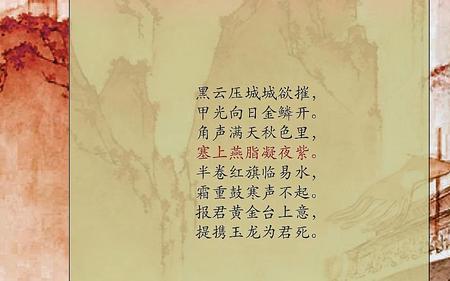 黑云压城城欲摧，
甲光向日金鳞开。
角声满天秋色里，
塞上燕脂凝夜紫。
半卷红旗临易水，
霜重鼓寒声不起。
报君黄金台上意，
提携玉龙为君死。